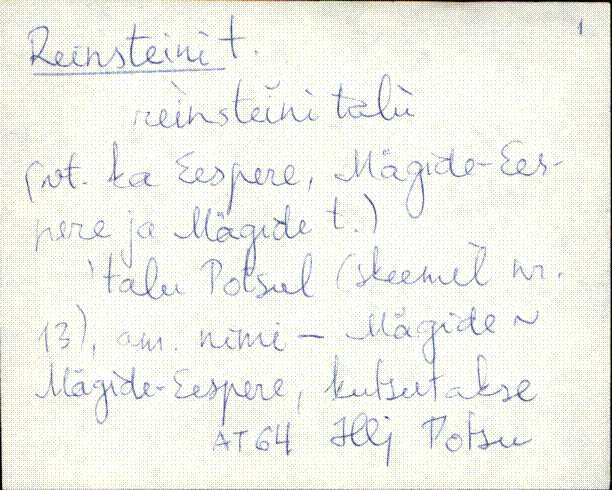 1
Reinsteini t.
rèinsteìni talù
(vt. ka Eespere, Mägide-Ees-
pere ja Mägide t.)
'talu Potsul (skeemil nr.
13), am. nimi – Mägide ~
Mägide-Eespere, kutsutakse
AT64 Hlj Potsu